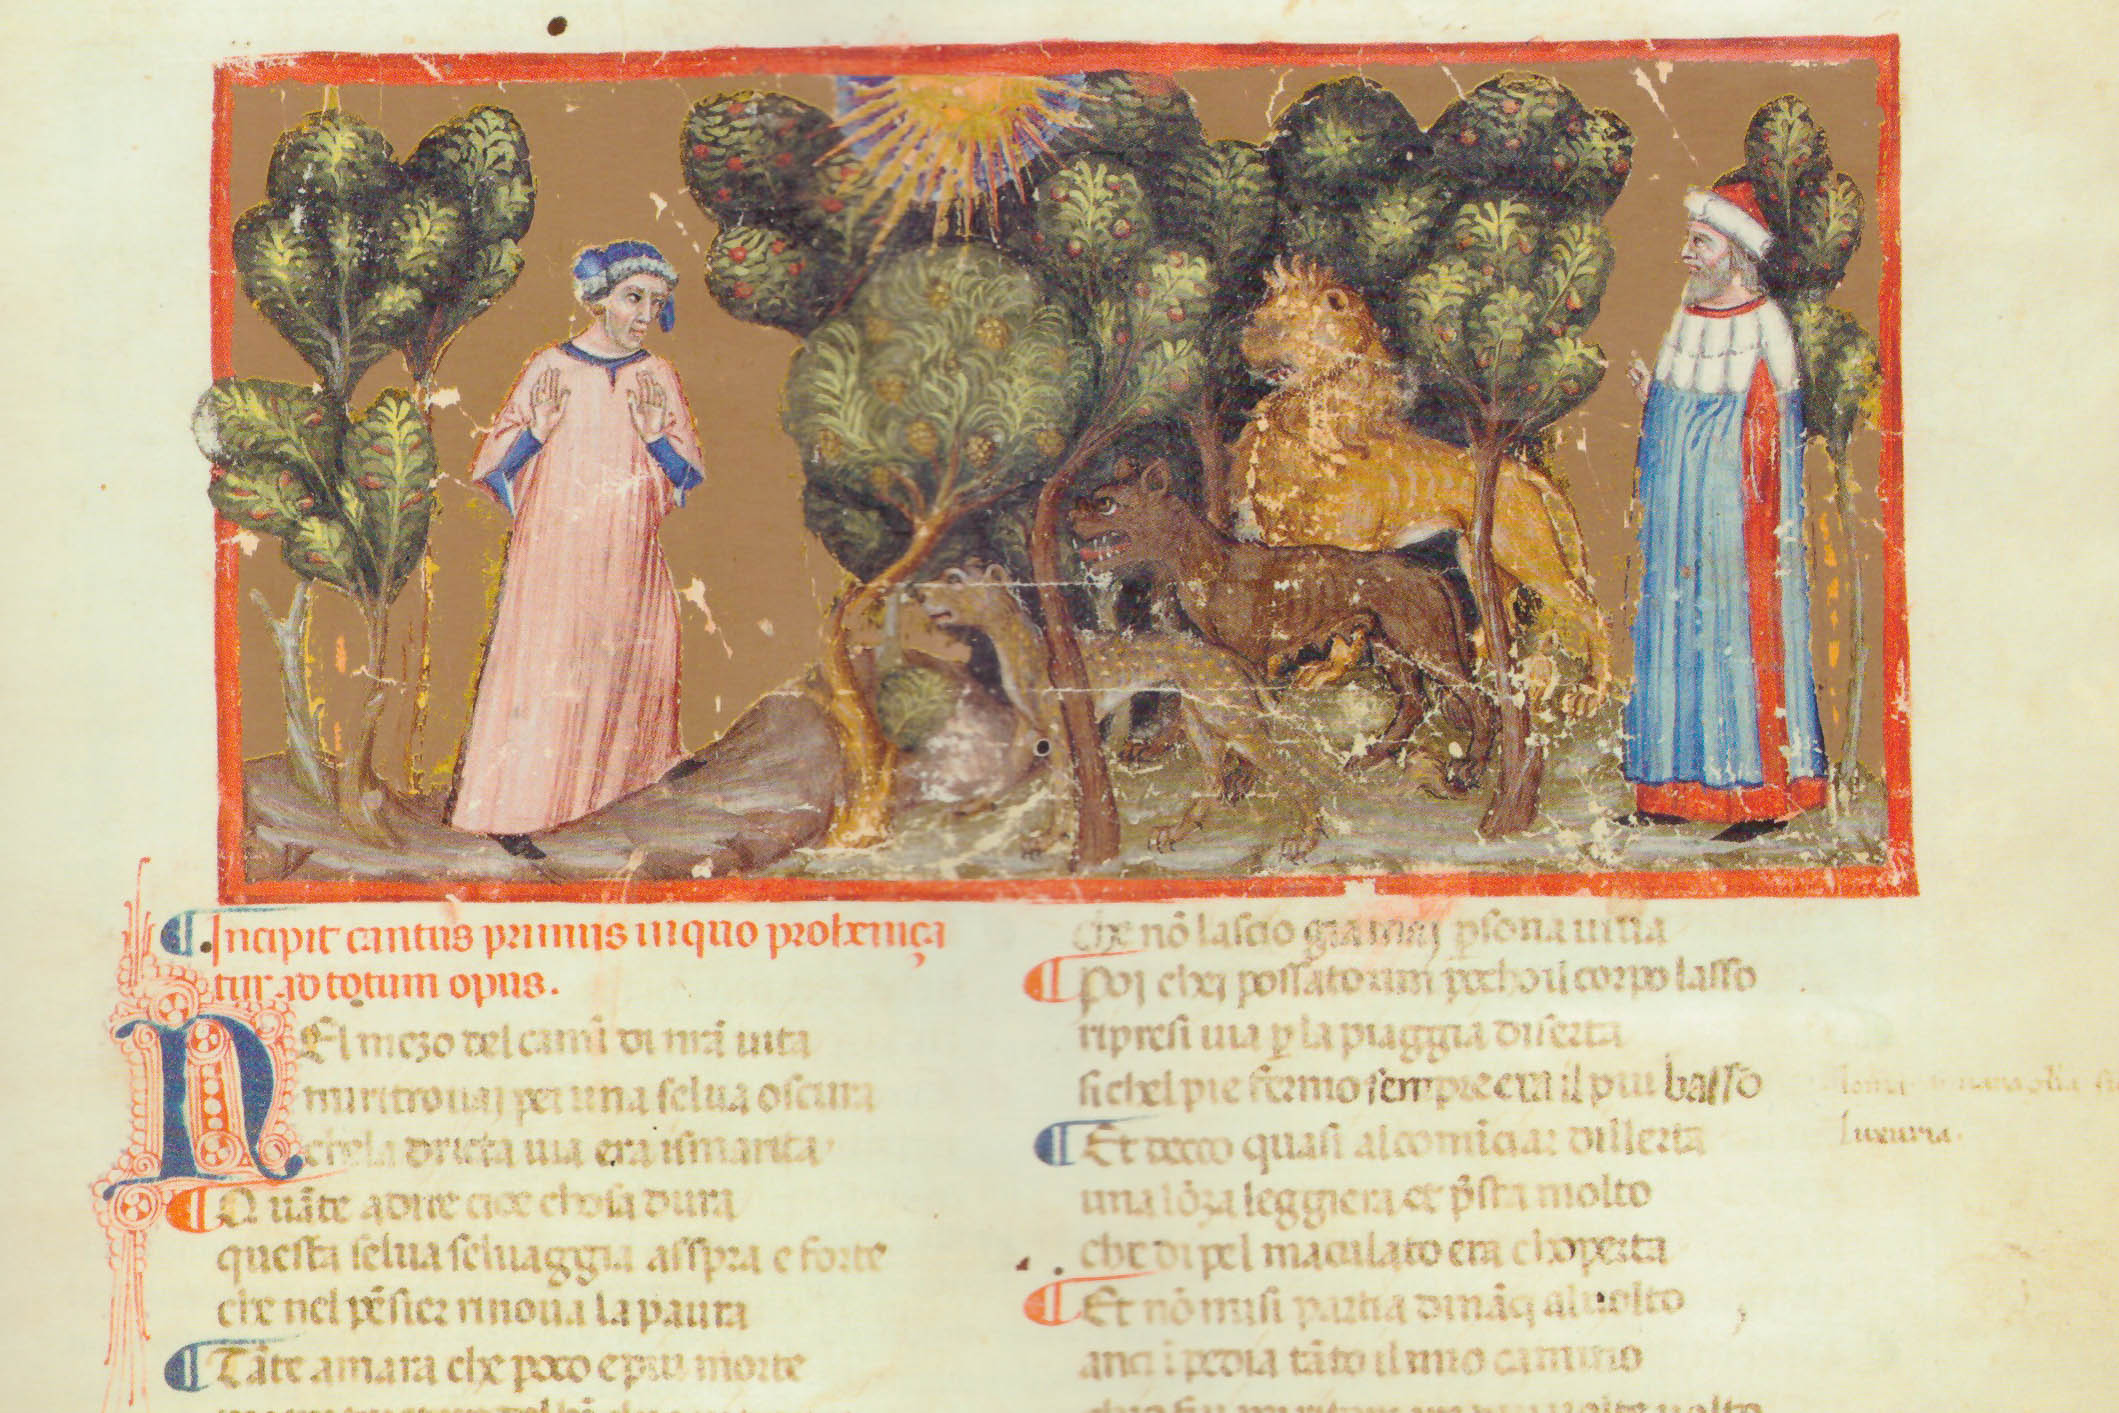 Incipit cantus primus in quo prohemiça
tur ad totum opus.
NEl mezo del camĩ di nr̃a uita
mi ritrouaj per una selua oscura
che la dricta uia era ismarita
Quãte a dire cioe chosa dura
questa selua seluaggia asspra e forte
che nel pẽsier rinoua la paura
Tãte amara che poco e piu morte
che nõ lascio gia maj ꝑsona uiua
Poj chej possato um pocho il corpo lasso
ripresi uia ꝑ la piaggia diserta
si chel pie fermo sempre era il piu basso
Et ecco quasi al comĩciar dillerta
una lõza leggiera et p̃sta molto
che di pel maculato era choperta
Et nõ misi partia dinãçi al uolto
anci ĩpedia tãto il mio camino
luxuria.